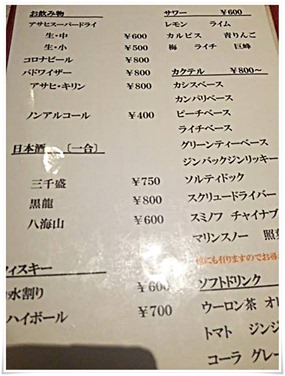 お飲み物
アサヒスーパードライ
生・中 ￥600
生・小 ￥500
コロナビール ￥800
バドワイザー ￥800
アサヒ・キリン ￥800
ノンアルコール ￥400
日本酒 〔一合〕
三千盛 ￥750
黒龍 ￥800
八海山 ￥600
ィスキー
水割り ￥600
ハイボール ￥700
サワー ￥600
レモン ライム
カルピス 青りんご
梅 ライチ 巨峰
カクテル ￥800～
カシスベース
カンパリベース
ピーチベース
ライチベース
グリーンティーベース
ジンバックジンリッキー
ソルティドック
スクリュードライバー
スミノフ チャイナブ
マリンスノー 照
にも有りますのでお得
ソフトドリンク
ウーロン茶 オレ
トマト ジンジ
コーラ グレー